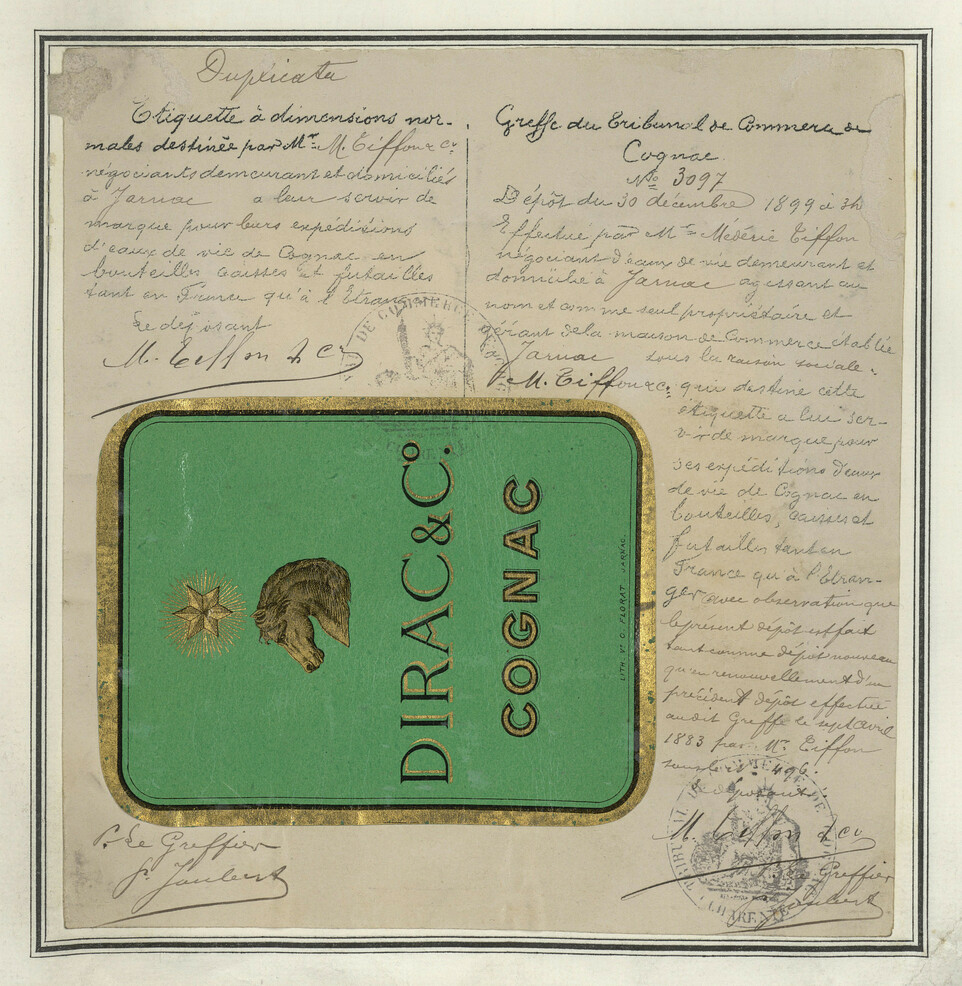 Duplicata
Etiquette à dimensions nor-
males destinée par Mrs M. Tiffon & Cie
négociants demeurant et domiciliés
à Jarnac a leur servir de
marque pour leurs expéditions
d'eaux de vie de Cognac en
bouteilles caisses et futailles
tant en France qu'à l'Etranger
Le déposant
M. Tiffon & Co
Greffe du Tribunal de Commerce de
Cognac.
No 3097
Dépôt du 30 décembre 1899 à 3h
Effectué par Mr Médéric Tiffon
négociant d'eaux de vie demeurant et
domicilié à Jarnac agissant au
nom et comme seul propriétaire et
gérant de la maison de Commerce établie
Jarnac sous la raison sociale:
M. Tiffon & Co: qui destine cette
étiquette a lui ser-
vir de marque pour
ses expéditions d'eaux
de vie de Cognac en
bouteilles, caisses et
futailles tant en
France qu'à l'Etran-
ger avec observation que
le présent dépôt est fait
tant comme dépôt nouveau
qu'en renouvellement d'un
précédent dépôt effectué
audit Greffe le sept avril
1883 par Mr Tiffon
sous le No 496.
Le déposant:
M. Tiffon & Co
Greffier
Joubert
DIRAC & Co.
COGNAC
LITH. Ve C. FLORAT JARNAC.
P. Le Greffier
Joubert
TRIBUNAL DE COMMERCE DE
CHARENTE
DE COMMERCE DE
CHARENTE